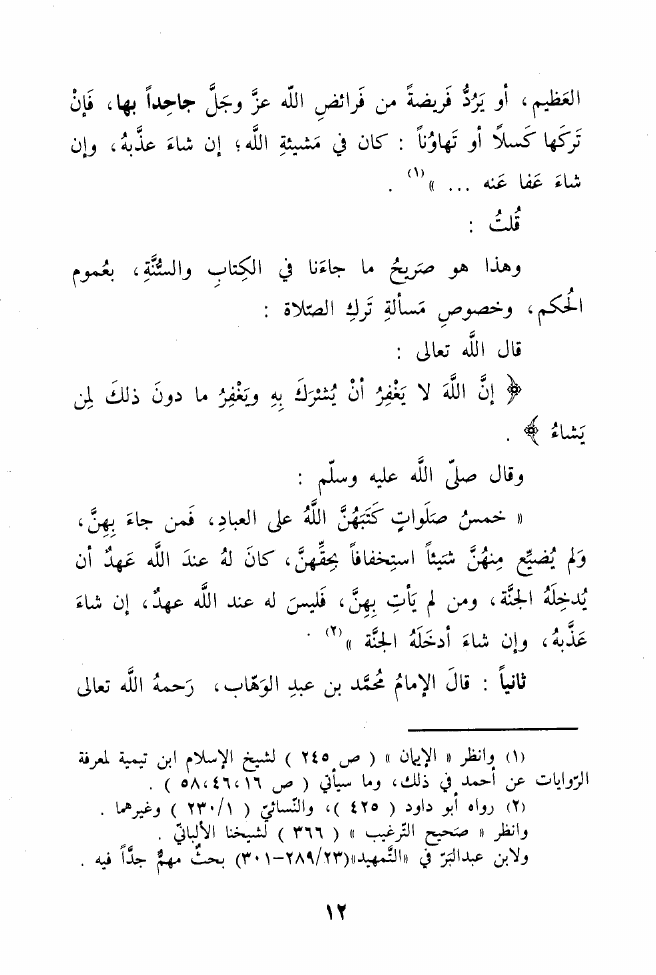 العَظيم، أو يَرُدُّ فَريضةً من فَرائضِ اللّه عزَّ وجَلَّ جاحِداً بها، فَإنْ
تَركَها كَسلًا أو تَهاوُناً : كان في مَشيئةِ اللَّه؛ إن شاءَ عذَّبهُ، وإن
شاءَ عَفا عَنه ... »(١) .
قُلتُ :
وهذا هو صَريحُ ما جاءَنا في الكِتابِ والسُّنَّةِ، بعُموم
الحُكم، وخصوصِ مَسألةِ تَركِ الصّلاة :
قال اللَّه تعالى :
﴿ إنَّ اللَّهَ لا يَغْفِرُ أنْ يُشْرَكَ بِهِ ويَغْفِرُ ما دونَ ذلكَ لِمن
يَشاءُ ﴾ .
وقال صلّى اللَّه عليه وسلّم :
« خمسُ صَلَواتٍ كَتَبَهُنَّ اللَّهُ على العبادِ، فَمن جاءَ بِهِنَّ،
وَلم يُضيِّع مِنهُنَّ شَيئاً استِخفافاً بحقِّهنَّ، كانَ لهُ عندَ اللَّه عَهدٌ أن
يُدخِلَهُ الجنَّة، ومن لم يَأتِ بِهِنَّ، فَليسَ له عند اللَّه عهدٌ، إن شاءَ
عَذَّبهُ، وإن شاءَ أدخَلَهُ الجنَّة »(٢) .
ثانياً : قالَ الإمامُ مُحمَّد بن عبدِ الوَهّاب، رَحمهُ اللَّه تعالى
(١) وانظر « الإيمان » ( ص ٢٤٥ ) لشيخ الإسلام ابن تيمية لمعرفة
الرّوايات عن أحمد في ذلك، وما سيأتي ( ص ١٦،٤٦،٥٨ ) .
(٢) رواه أبو داود ( ٤٢٥ )، والنَّسائيّ ( ٢٣٠/١ ) وغيرهما .
وانظر « صَحيح التَّرغيب » ( ٣٦٦ ) لشيخنا الألبانيّ .
ولابن عبدالبَرّ في «التَّمهيد»(٢٨٩/٢٣-٣٠١) بحثٌ مهمٌّ جدَّاً فيه .
١٢